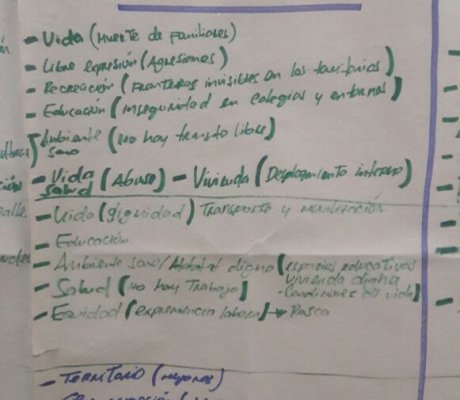 - Vida (Muerte de Familiares)
- Libre expresión (Agresiones)
- Recreación (Fronteras invisibles en los territorios)
- Educación (Inseguridad en colegios y entornos)
Ambiente sano (No hay transito libre)
- Vida Salud (Abuso) - Vivienda (Desplazamiento interno)
- Vida (dignidad) Transporte y movilización
- Educación
- Ambiente sano/Habitat digno (espacios educativos
vivienda digna
- Condiciones de vida)
- Salud (No hay Trabajo)
- Equidad (experiencia laboral) → Rosca
- Territorio (mejoras)